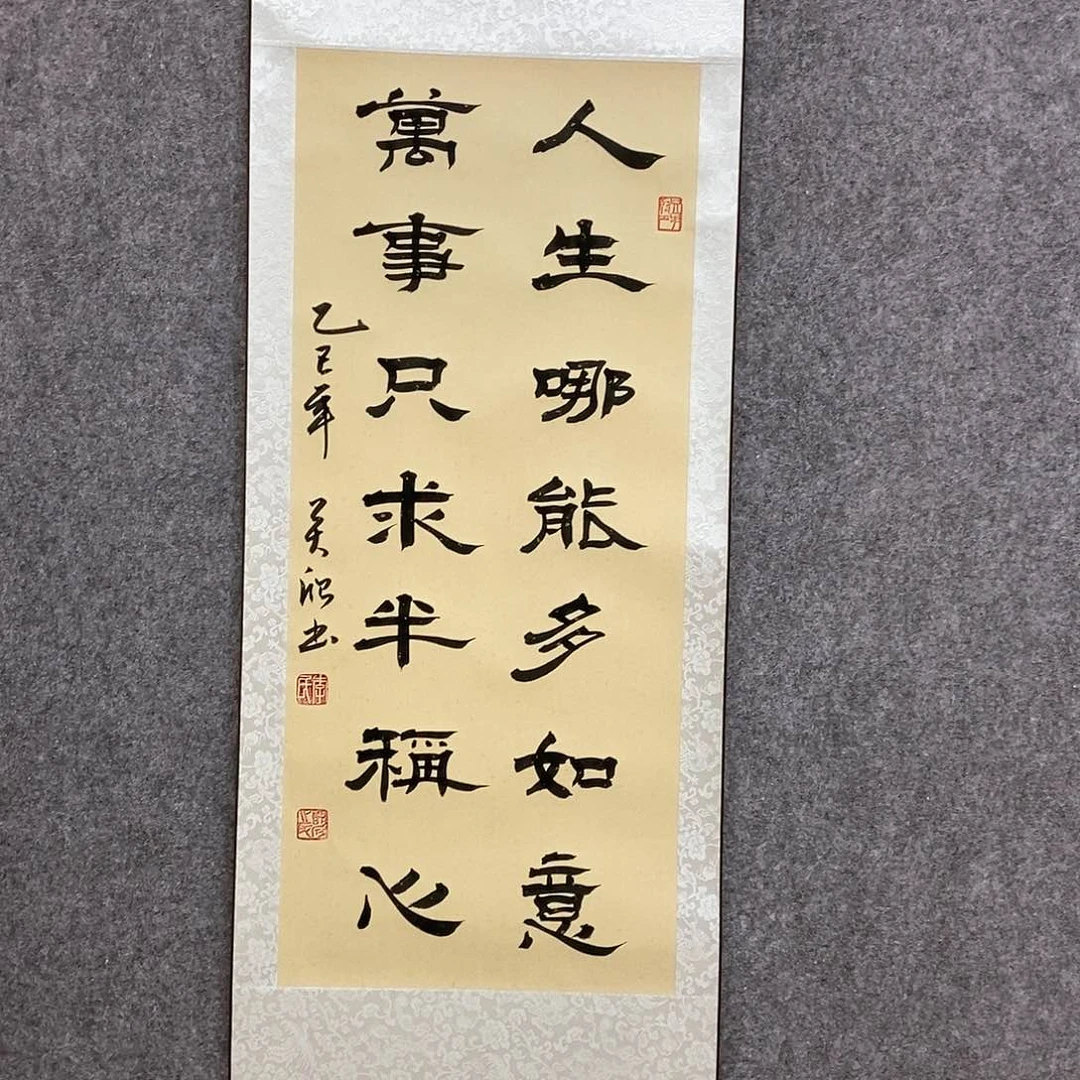 人生哪能多如意
萬事只求半稱心
乙巳年 書